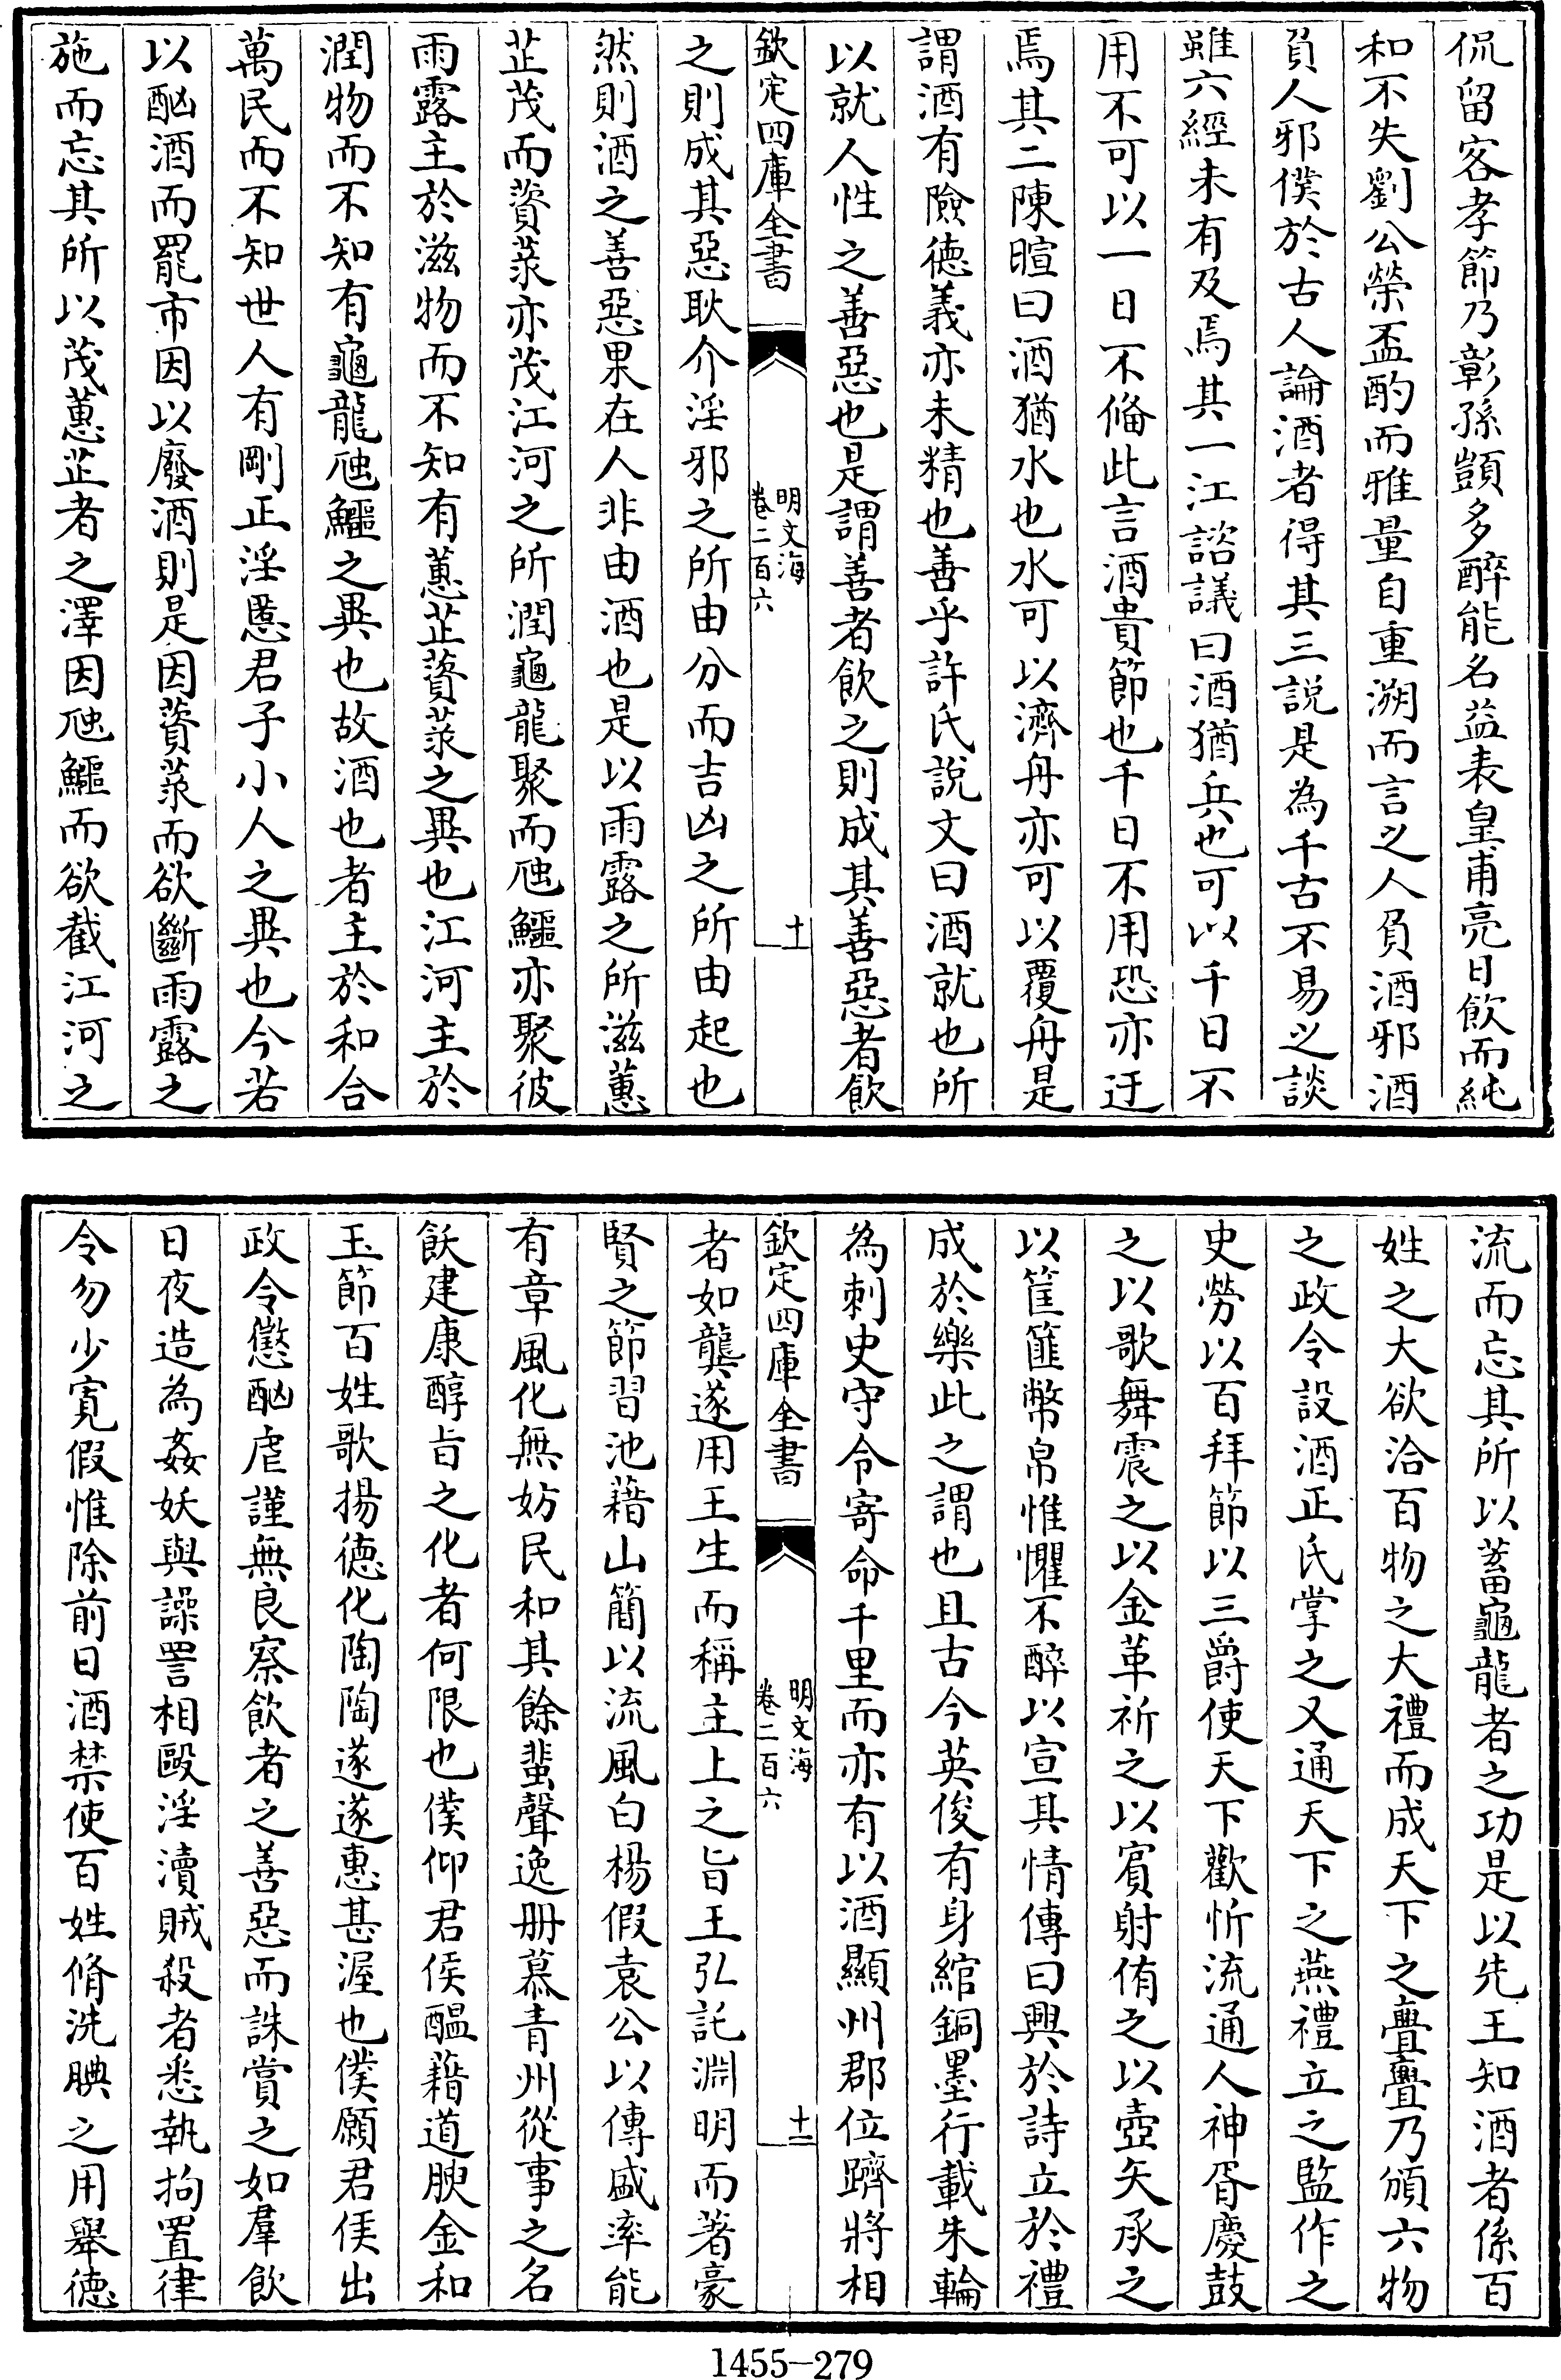 侃留客孝節乃彰孫顗多醉能名益表皇甫亮日飲而純
和不失劉公榮盃酌而雅量自重溯而言之人負酒邪酒
負人邪僕於古人論酒者得其三説是為千古不易之談
雖六經未有及焉其一江諮議曰酒猶兵也可以千日不
用不可以一日不備此言酒貴節也千日不用恐亦迂
焉其二陳暄曰酒猶水也水可以濟舟亦可以覆舟是
謂酒有險德義亦未精也善乎許氏説文曰酒就也所
以就人性之善惡也是謂善者飲之則成其善惡者飲
欽定四庫全書
明文海
卷二百六
十一
之則成其惡耿介淫邪之所由分而吉凶之所由起也
然則酒之善惡果在人非由酒也是以雨露之所滋蕙
芷茂而薋菉亦茂江河之所潤龜龍聚而虺鱷亦聚彼
雨露主於滋物而不知有蕙芷薋菉之異也江河主於
潤物而不知有龜龍虺鱷之異也故酒也者主於和合
萬民而不知世人有剛正淫慝君子小人之異也今若
以酗酒而罷市因以廢酒則是因薋菉而欲斷雨露之
施而忘其所以茂蕙芷者之澤因虺鱷而欲截江河之
流而忘其所以蓄龜龍者之功是以先王知酒者係百
姓之大欲洽百物之大禮而成天下之亹亹乃頒六物
之政令設酒正氏掌之又通天下之燕禮立之監作之
史勞以百拜節以三爵使天下歡忻流通人神胥慶鼓
之以歌舞震之以金革祈之以賓射侑之以壺矢承之
以筐篚幣帛惟懼不醉以宣其情傳曰興於詩立於禮
成於樂此之謂也且古今英俊有身綰銅墨行載朱輪
為刺史守令寄命千里而亦有以酒顯州郡位躋將相
欽定四庫全書
明文海
卷二百六
十二
者如龔遂用王生而稱主上之旨王弘託淵明而著豪
賢之節習池藉山簡以流風白楊假袁公以傳盛率能
有章風化無妨民和其餘蜚聲逸册慕青州從事之名
飫建康醇旨之化者何限也僕仰君侯醞藉道腴金和
玉節百姓歌揚德化陶陶遂遂惠甚渥也僕願君侯出
政令懲酗虐謹無良察飲者之善惡而誅賞之如羣飲
日夜造為姦妖與譟詈相毆淫瀆賊殺者悉執拘置律
令勿少寛假惟除前日酒禁使百姓脩洗腆之用舉德
1455—279